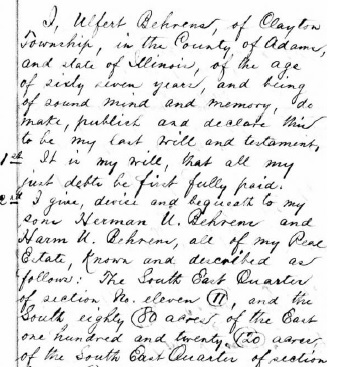 I, Ulfert Behrens, of Clayton
Township, in the County of Adams,
and state of Illinois, of the age
of sixty seven years, and being
of sound mind and memory, do
make, publish and declare this
to be my last will and testament,
1st It is my will, that all my
just debts be first fully paid.
2nd I give, device and bequeath to my
sons Herman U. Behrens and
Harm U. Behrens, all of my Real
Estate, known and described as
follows: The South East Quarter
of section No. eleven (11), and the
South eighty (80 acres, of the East
one hundred and twenty (120) acres
of the South East Quarter of section